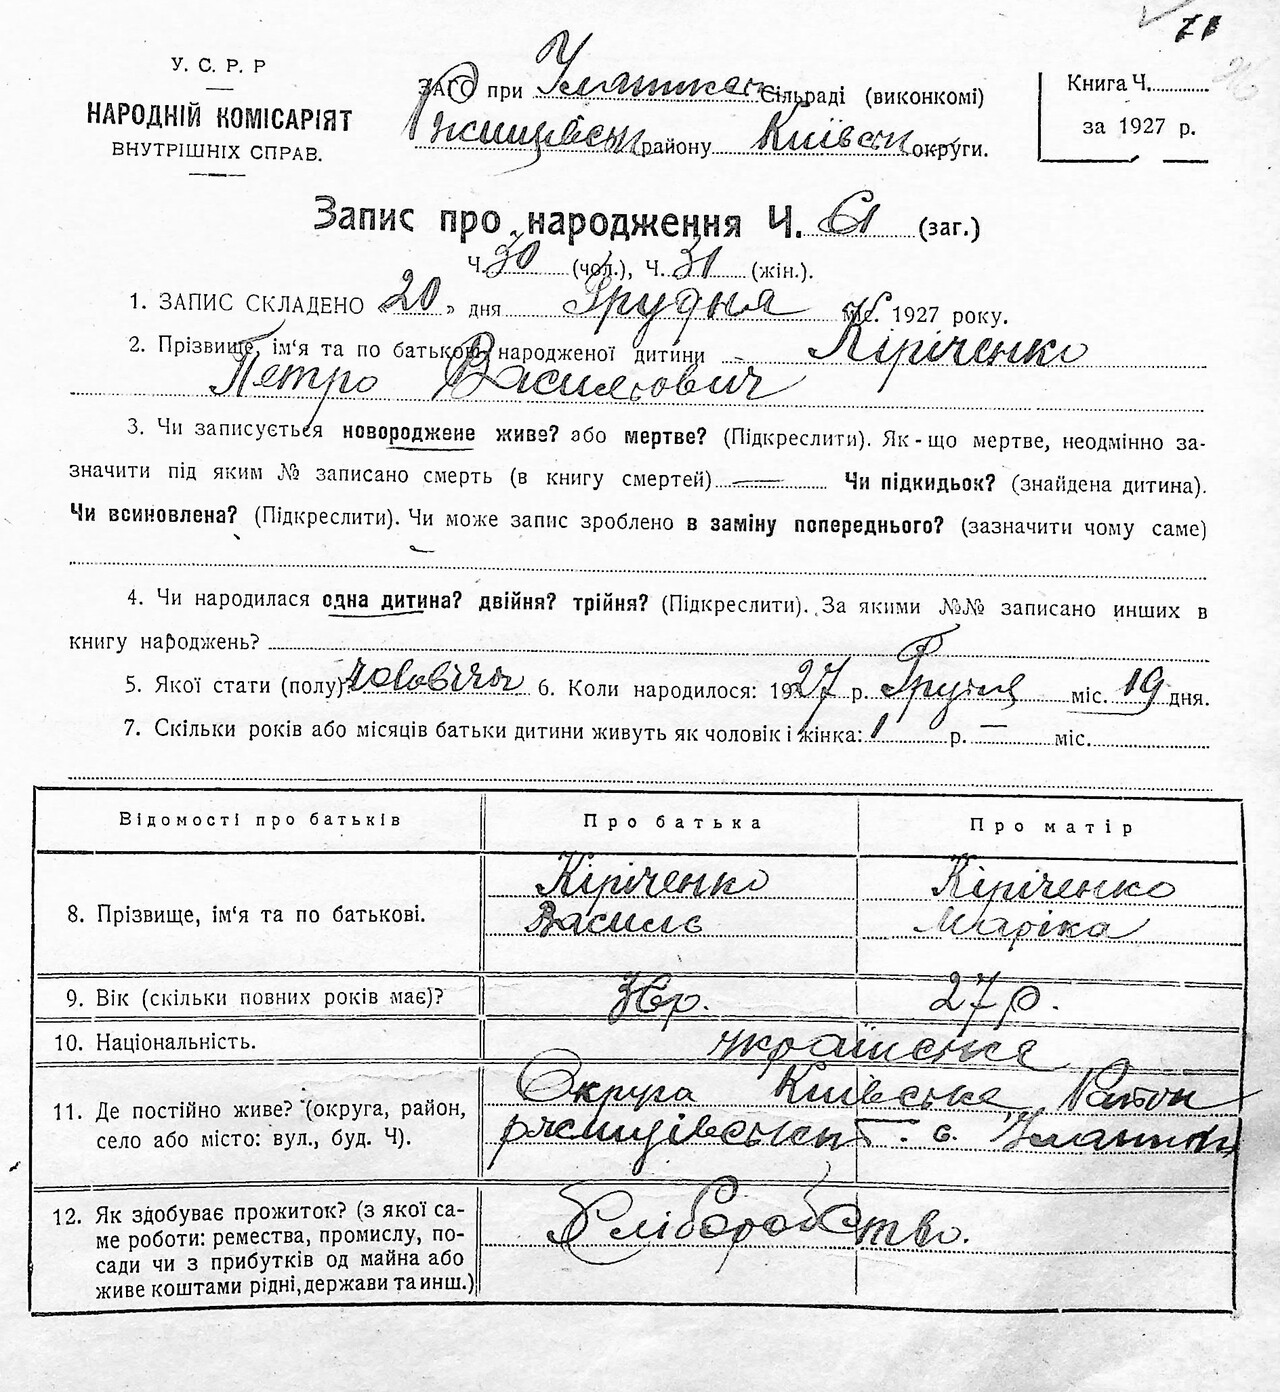 71
У. С. Р. Р
НАРОДНІЙ КОМІСАРІЯТ
ВНУТРІШНІХ СПРАВ.
ЗАГС при Сільраді (виконкомі)
району Київськ округи.
Книга Ч.
за 1927 р.
Запис про народження Ч. 61 (заг.)
Ч. 30 (чол.), Ч. 31 (жін.).
1. ЗАПИС СКЛАДЕНО „20„ дня Грудня міс. 1927 року.
2. Прізвище, ім‘я та по батькові народженої дитини Кіріченко
Петро Васильович
3. Чи записується новороджене живе? або мертве? (Підкреслити). Як-що мертве, неодмінно за-
значити під яким № записано смерть (в книгу смертей) — Чи підкидьок? (знайдена дитина).
Чи всиновлена? (Підкреслити). Чи може запис зроблено в заміну попереднього? (зазначити чому саме)
4. Чи народилася одна дитина? двійня? трійня? (Підкреслити). За якими №№ записано инших в
книгу народжень?
5. Якої стати (полу)? чоловічої 6. Коли народилося: 1927 р. Грудня міс. 19 дня.
7. Скільки років або місяців батьки дитини живуть як чоловік і жінка: 1 р. — міс.
Відомості про батьків Про батька Про матір
8. Прізвище, ім‘я та по батькові.
Кіріченко Кіріченко
Василь Маріка
9. Вік (скільки повних років має)? 27 р.
10. Національність. українське
11. Де постійно живе? (округа, район,
село або місто: вул., буд. Ч).
Округа Київське Район
с.
12. Як здобуває прожиток? (з якої са-
ме роботи: ремества, промислу, по-
сади чи з прибутків од майна або
живе коштами рідні, держави та инш.)
Хліборобство.